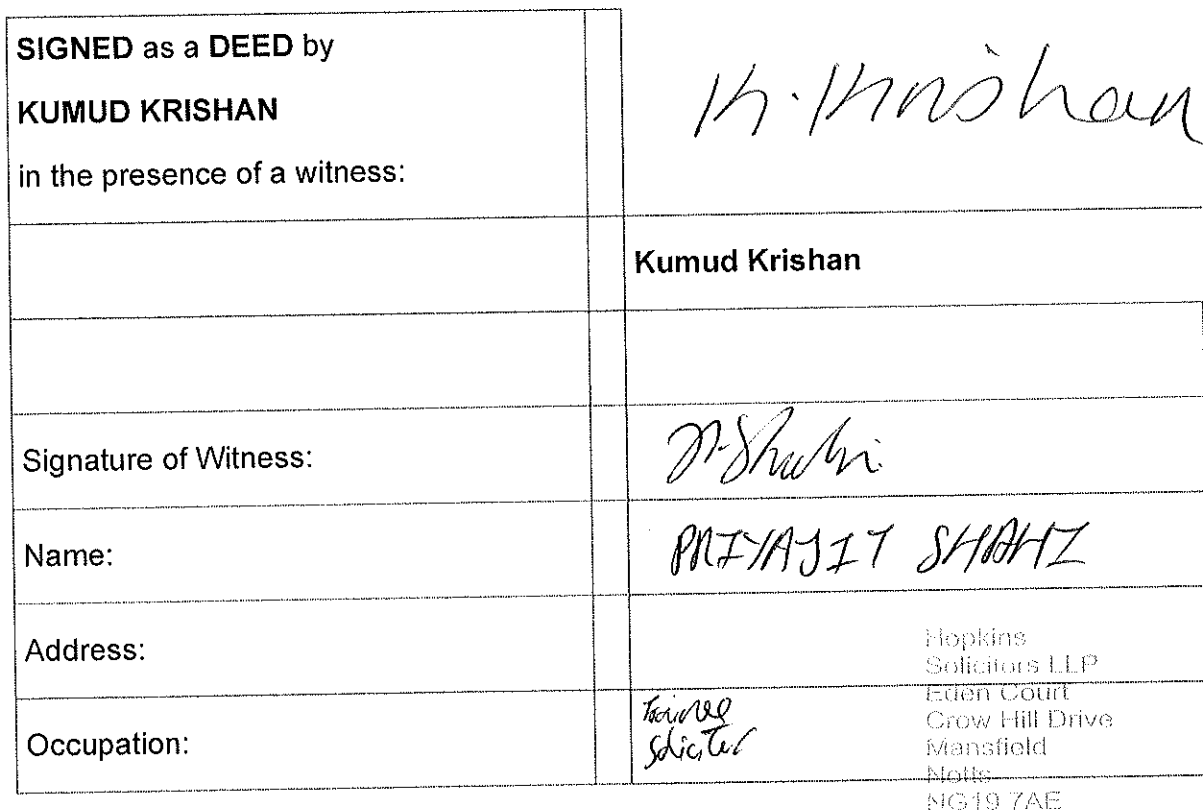 SIGNED as a DEED by
KUMUD KRISHAN
in the presence of a witness:
K. Krishan
Kumud Krishan
Signature of Witness:
P. Shahi
Name:
PRIYAJIT SHAHI
Address:
Hopkins
Solicitors LLP
Eden Court
Crow Hill Drive
Mansfield
Notts
NG19 7AE
Occupation:
Trainee
Solicitor